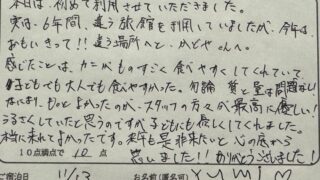 本日は、初めて利用させていただきました。
実は、6年間、違う旅館を利用していましたが、今年は、
おもいきって!!違う場所へと、かどやさんへ。
感じたことは、カニがものすごく食べやすくしてくれていて、
子どもでも大人でも食べやすかった。勿論 質と量は問題なし!
なにより、もっとよかったのが、スタッフの方々が最高に優しい!
うるさくしていたと思うのですが子どもにも優しくしてくれました。
本当に来れてよかったです。来年も是非来たいと心の底から
10点満点で 10 点 思いました!!ありがとうございました!
ご宿泊日 11/13 お名前(匿名可) YUMI